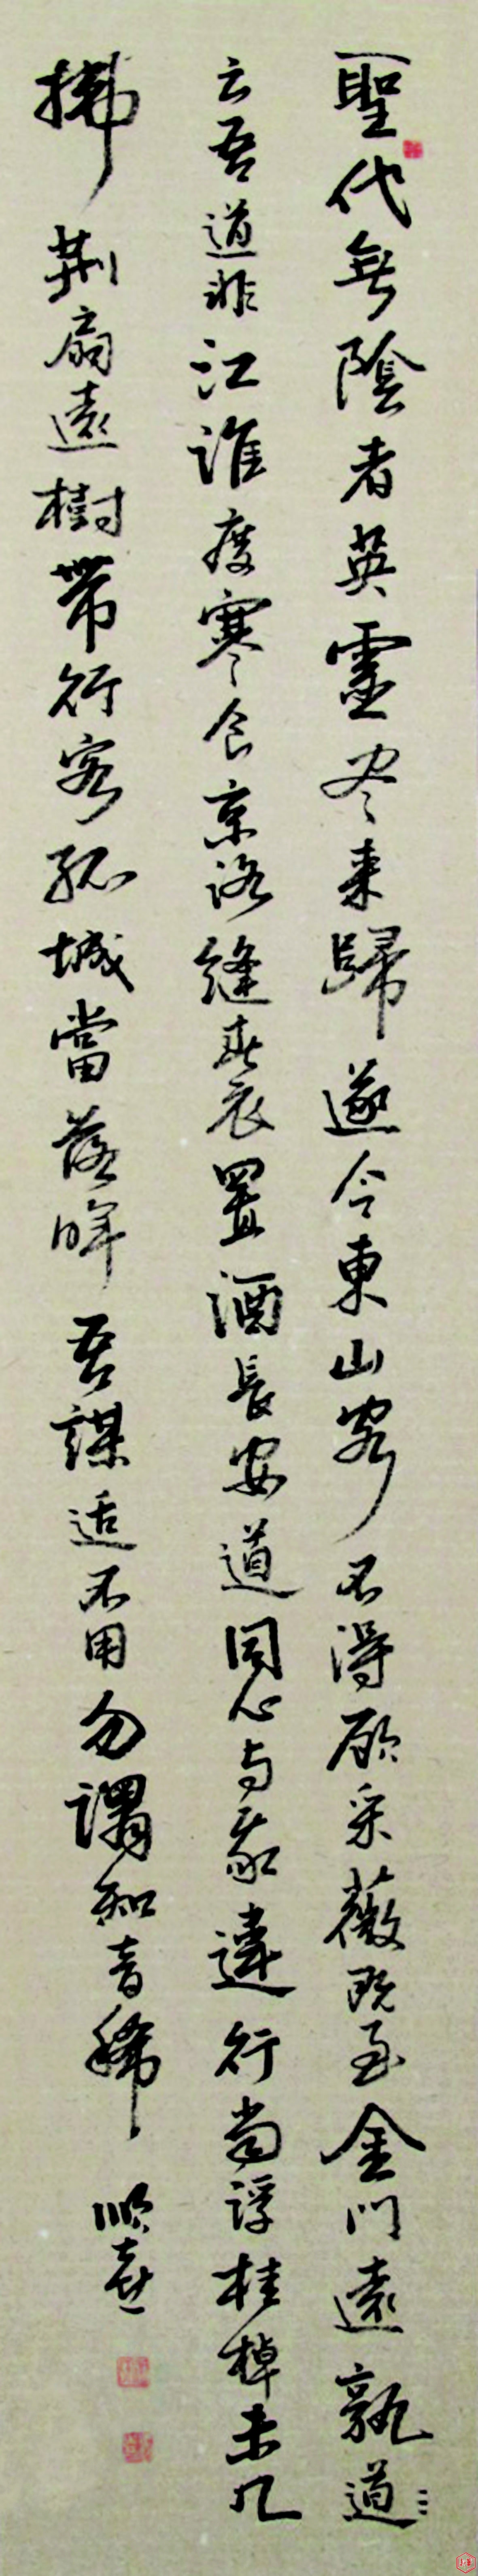 聖代無陰者英靈尽來歸遂令東山客不得顧采薇既至金門遠孰道
云吾道非江誰度寒食京洛縫春衣置酒長安道同心与我違行當浮桂棹未几
拂荊扇遠樹帶行客孤城當落暉吾謀適不用勿謂知音稀